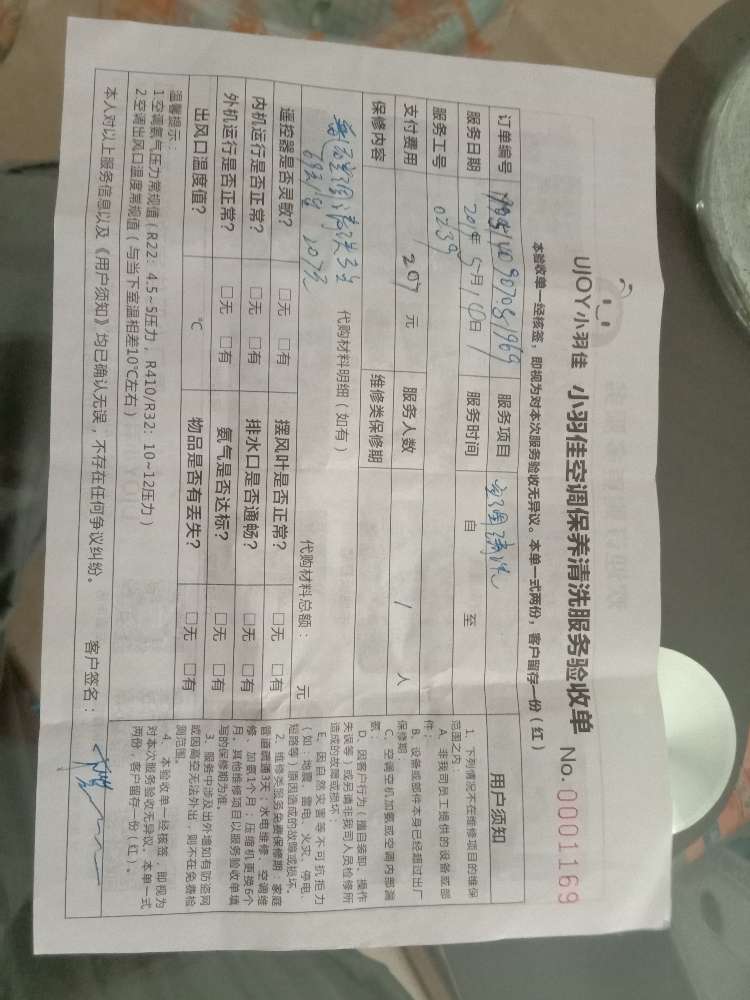 UJOY小羽佳 小羽佳空调保养清洗服务验收单 No. 0001169
本验收单一经核签，即视为对本次服务验收无异议。本单一式两份，客户留存一份（红）
订单编号 服务项目 空调清洗
服务日期 2019年5月10日 服务时间 自 至
服务工号 0239
支付费用 207 元 服务人数 1 人
保修内容 维修类保修期
代购材料明细（如有） 代购材料总额： 元
69元/台 207元
遥控器是否灵敏？ □无 □有 摆风叶是否正常？ □无 □有
内机运行是否正常？ □无 □有 排水口是否通畅？ □无 □有
外机运行是否正常？ □无 □有 氨气是否达标？ □无 □有
出风口温度值？ ℃ 物品是否有丢失？ □无 □有
温馨提示：
1空调氨气压力常规值（R22：4.5~5压力，R410/R32：10~12压力）
2空调出风口温度常规值（与当下室温相差10℃左右）
本人对以上服务信息以及《用户须知》均已确认无误，不存在任何争议纠纷。 客户签名：
用户须知
1、下列情况不在维修项目的维保
范围之内：
A、非我司员工提供的设备或部
件；
B、设备或部件本身已经超过出厂
保修期
C、空调空机加氨或空调内部漏
氨；
D、因客户行为（擅自装卸、操作
失误等）或另请非我司人员检修所
造成的故障或损坏；
E、因自然灾害等不可抗拒力
（如：地震、雷电、火灾、停电、
短路等）原因造成的故障或损坏。
2、维修类服务免费保修期：家庭
管道疏通3天；水电维修、空调维
修、加氨1个月；压缩机更换6个
月。其他维修项目以服务验收单填
写的保修期为准。
3、服务中涉及出外墙如有防盗网
或因高空无法外出，则不在免费检
测范围。
4、本验收单一经核签，即视为
对本次服务验收无异议。本单一式
两份，客户留存一份（红）。